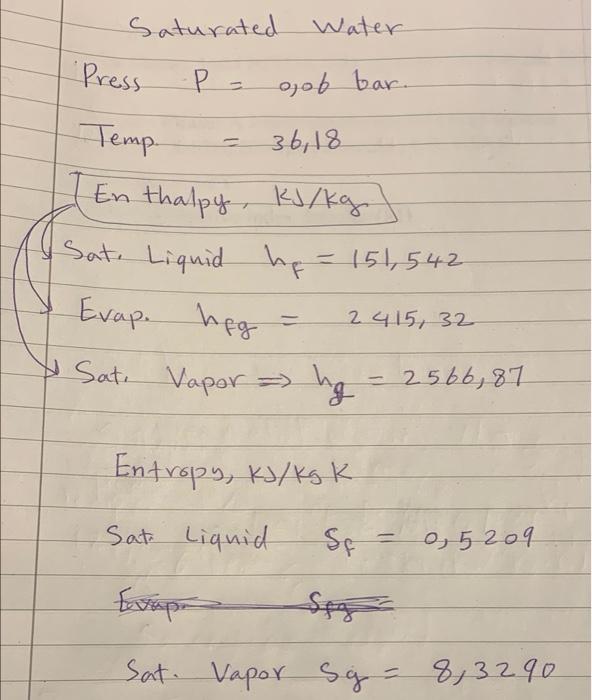 Saturated Water
Press P = 0,06 bar.
Temp. = 36,18
Enthalpy, KJ/kg
Sat. Liquid hf = 151,542
Evap. hfg = 2415,32
Sat. Vapor => hg = 2566,87
Entropy, KJ/Kg K
Sat. Liquid Sf = 0,5209
Evap. Sfg =
Sat. Vapor Sg = 8,3290